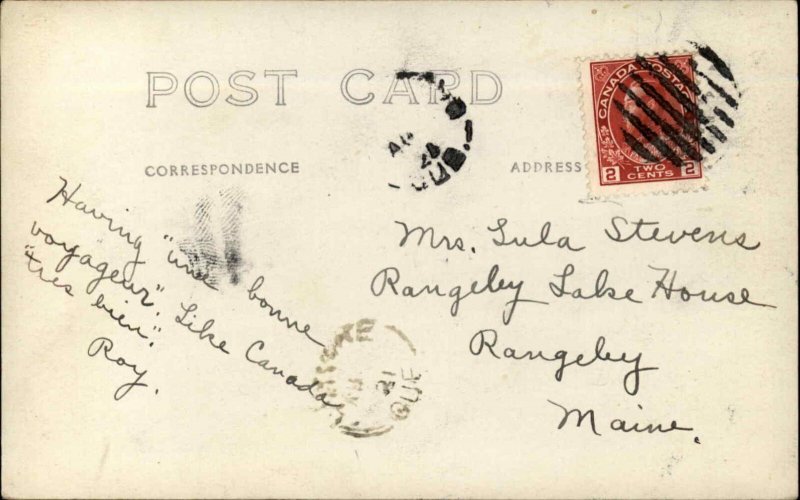 POST CARD
CORRESPONDENCE
ADDRESS
CANADA POSTAGE
2 TWO CENTS 2
QUE.
Having "une bonne
voyageur". Like Canada
"tres bien".
Roy.
Mrs. Lula Stevens
Rangeley Lake House
Rangeley
Maine.
QUE